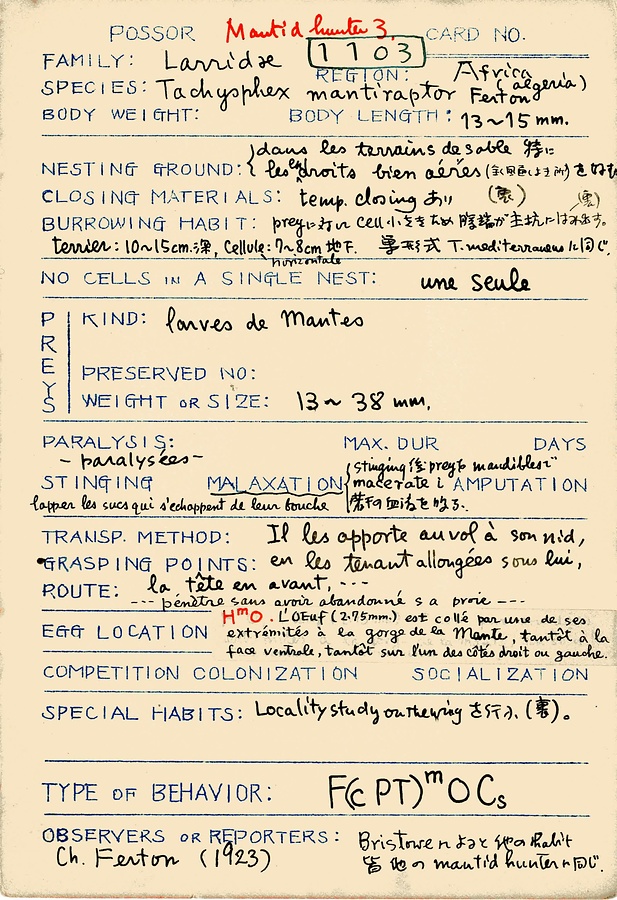 POSSOR Mantid hunter 3. CARD NO.
1103
FAMILY: Larridæ
REGION: Africa (algeria)
SPECIES: Tachysphex mantiraptor Ferton
BODY WEIGHT: BODY LENGTH: 13~15 mm.
dans les terrains de sable 特に
NESTING GROUND: les endroits bien aérés
CLOSING MATERIALS: temp. closing あり (裏)
BURROWING HABIT: preyに対し cell小さきため
terrier: 10~15cm.深, Cellule: 7~8cm 地下. 巣形式 T. mediterraneus に同じ.
horizontale
NO CELLS IN A SINGLE NEST: une seule
PREYS
KIND: larves de Mantes
PRESERVED NO:
WEIGHT OR SIZE: 13~38 mm.
PARALYSIS: MAX. DUR DAYS
- paralysées -
stinging 後 preyを mandiblesで
STINGING MALAXATION macerate し AMPUTATION
lapper les sucs qui s'echappent de leur bouche
TRANSP. METHOD: Il les apporte au vol à son nid,
GRASPING POINTS: en les tenant allongées sous lui,
ROUTE: la tête en avant, ---
--- pénètre sans avoir abandonné sa proie ---
HmO. L'OEuf (2.75mm.) est collé par une de ses
EGG LOCATION extrémités à la gorge de la Mante, tantôt à la
face ventrale, tantôt sur l'un des côtés droit ou gauche.
COMPETITION COLONIZATION SOCIALIZATION
SPECIAL HABITS: Locality study を行ふ. (裏)。
TYPE OF BEHAVIOR: F(C PT)mO Cs
OBSERVERS OR REPORTERS: Bristowe によると 他の habit
Ch. Ferton (1923) 皆 他の mantid hunter に同じ.